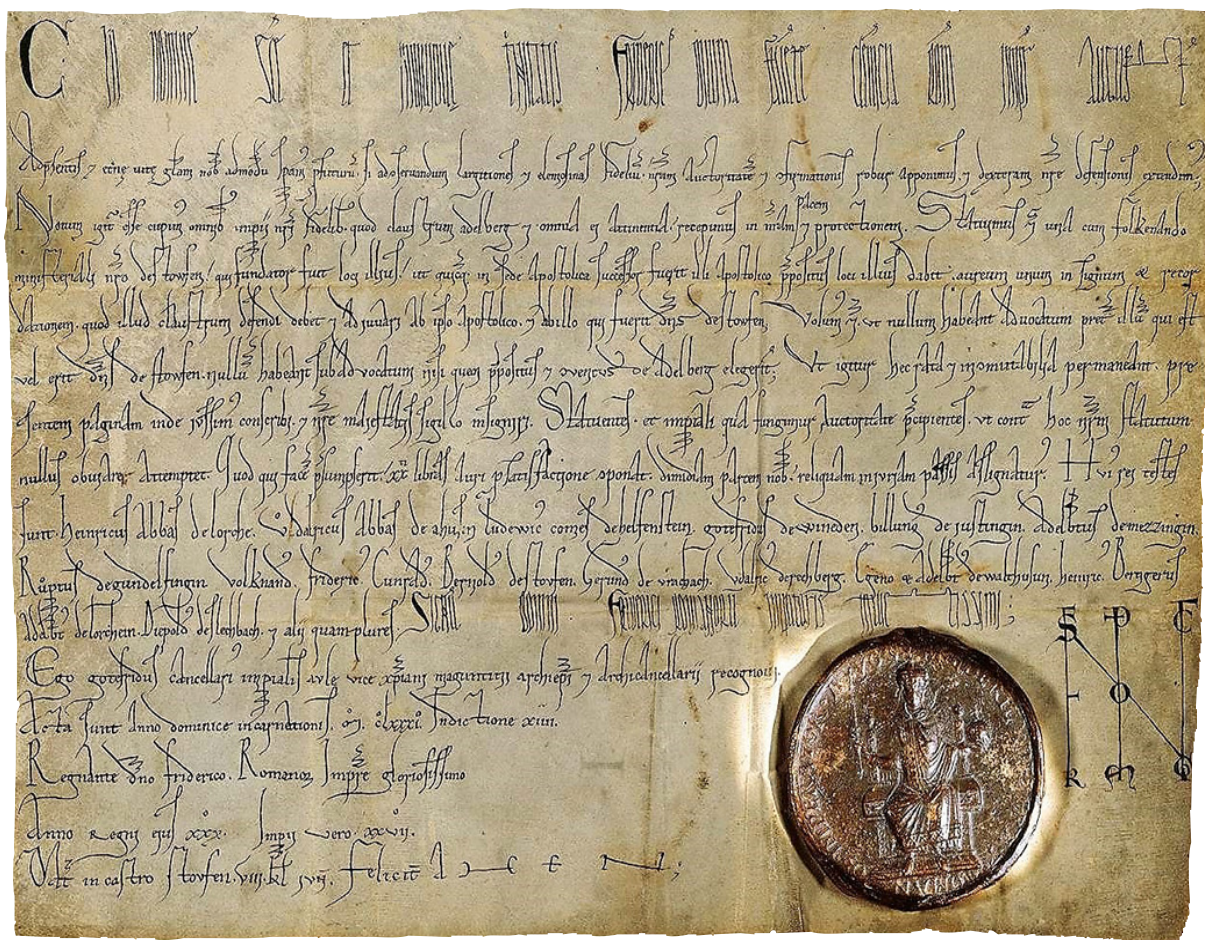 C In nomine Sce et individue trinitatis Frideric divina favete clemcia Rom impr August
Ad psentis & etne vite glam nob admodu spam pfuturu. si ad oservandum largitiones & elemosinas fideliu nrum auctoritate & ofirmationis robur apponimus, & dexteram nre defensionis extendim;
Notum igit esse cupim omnib impii nri fidelib. quod claustrum adelberg & omnia ei attinentia, recepimus in nram pacem & protectionem. Statuimus & una cum folknando
ministeriali nro de stowfen, qui fundator fuit loci illius, ut quicuq in sede apostolica successor fuerit illi apostolico ppositus loci illius dabit aureum unum in signum & recor
dationem. quod illud claustrum defendi debet & adiuvari ab ipso apostolico. & ab illo qui fuerit dns de stowfen, Volum & ut nullum habeant advocatum pret illu qui est
vel erit dns de stowfen. nullu habeant subadvocatum nisi quem ppositus & ventus de adelberg elegerit; Ut igitur hec rata & inmutabilia permaneant. pre
sentem paginam inde iussim conscribi, & nre maiestatis sigillo insigniri. Statuentes. et impiali qua fungimur auctoritate pcipientes. ut cont hoc nrm statutum
nullus obviare attemptet. Quod qui face psumpserit, xx libras auri p satisfactione oponat. dimidiam partem nob. reliquam iniuriam passis assignatur. Hui rei testes
sunt Heinricus Abbas de lorche. Vodalricus Abbas de ahusin ludewic comes de helfenstein. gotefridus de wineden. billung de iustingin. Adelbtus de mezzingin.
Ruptus de gundelfingin volknand. frideric. Cunrad. Bernold de stowfen. Gerund de vrichach. vdalric de rechberg. Egeno & adelbt de walthusin, heinric. Beringerus
Adelbt de lorchein. Diepold de slechbach. & alii quam plures. Signu domni Friderici romanorum imperatoris invictissimi;
Ego gotefridus cancellari impialis aule vice xpiani maguntini archiepi & Archicancellarii recognovi.
Acta sunt Anno dominice incarnationis. m. clxxxi. Indictione xiiii.
Regnante dno friderico. Romanoz Impre gloriosissimo
Anno Regni eius xxx. Impii vero. xxvii.
Dat in castro stowfen. viii. kl ivn. feliciter A M E N;